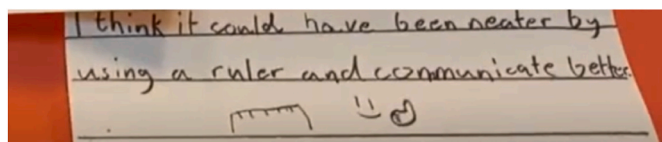 I think it could have been neater by
using a ruler and communicate better.